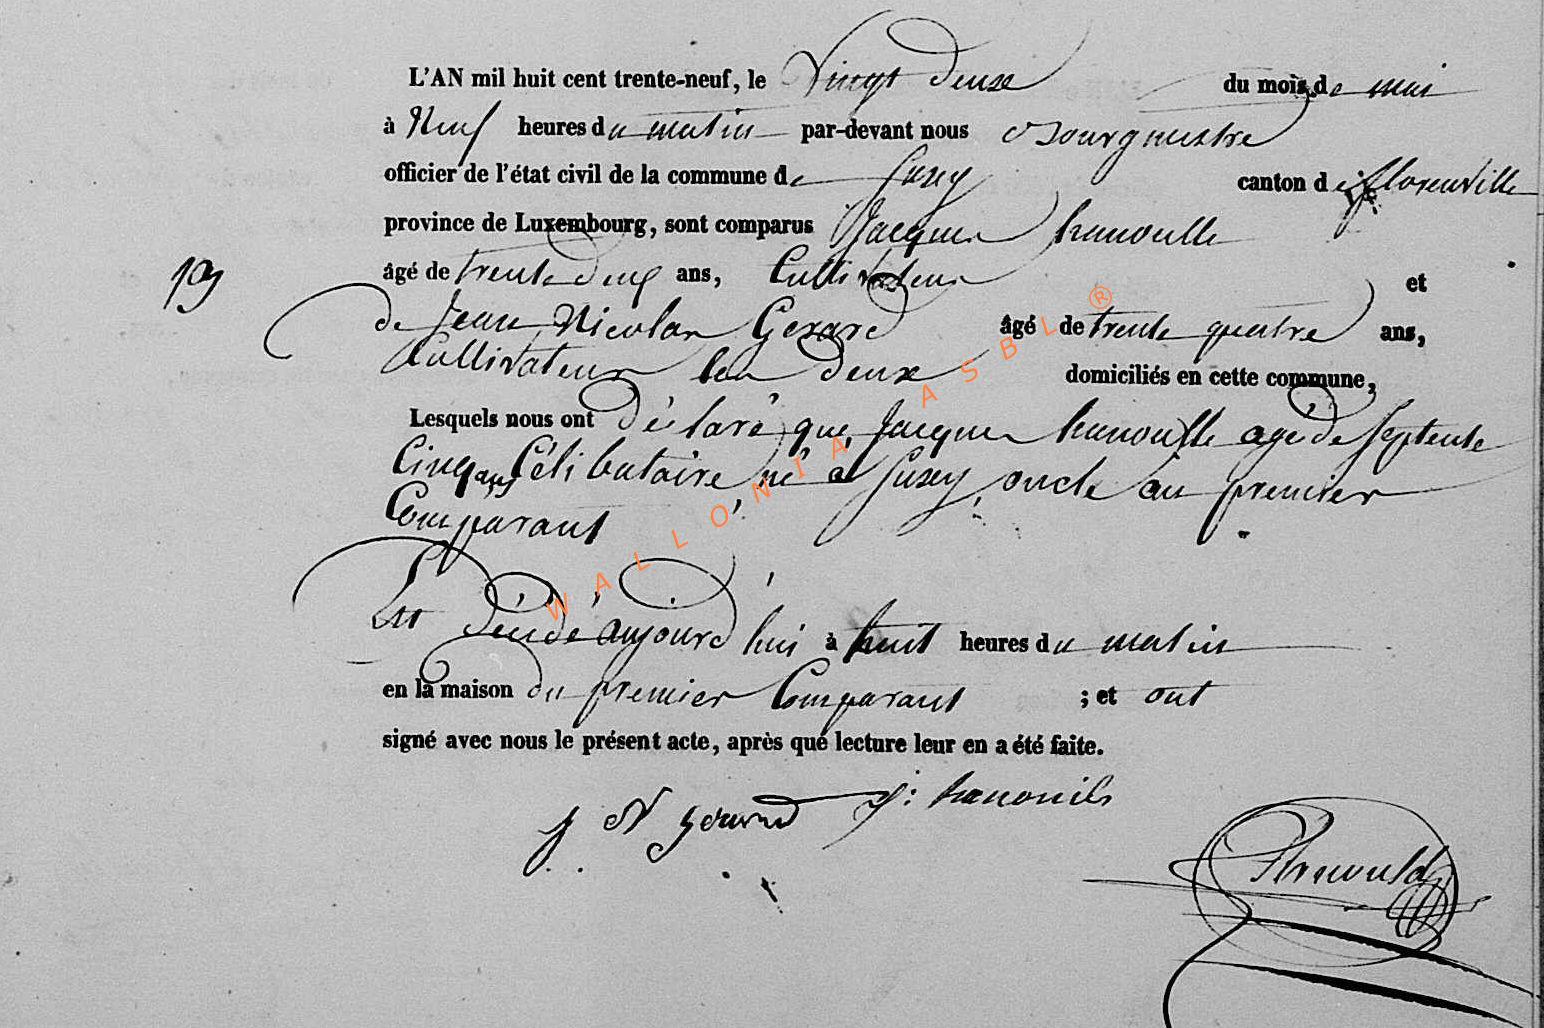 L'AN mil huit cent trente-neuf, le Vingt deux du mois de mai
à Neuf heures du matin par-devant nous Bourgmestre
officier de l'état civil de la commune de Suxy canton de florenville
province de Luxembourg, sont comparus Jacques hanoulle
19 âgé de trente deux ans, Cultivateur et
de Jean Nicolas Gerard âgé de trente quatre ans,
Cultivateur deux domiciliés en cette commune,
Lesquels nous ont déclaré que Jacques hanoulle agé de septente
Cinq ans Célibataire, né à Suxy, oncle au premier
Comparant
Est décédé aujourd'hui à huit heures du matin
en la maison du premier Comparant ; et ont
signé avec nous le présent acte, après que lecture leur en a été faite.
J N gerard J:
WALLONIA ASBL ®